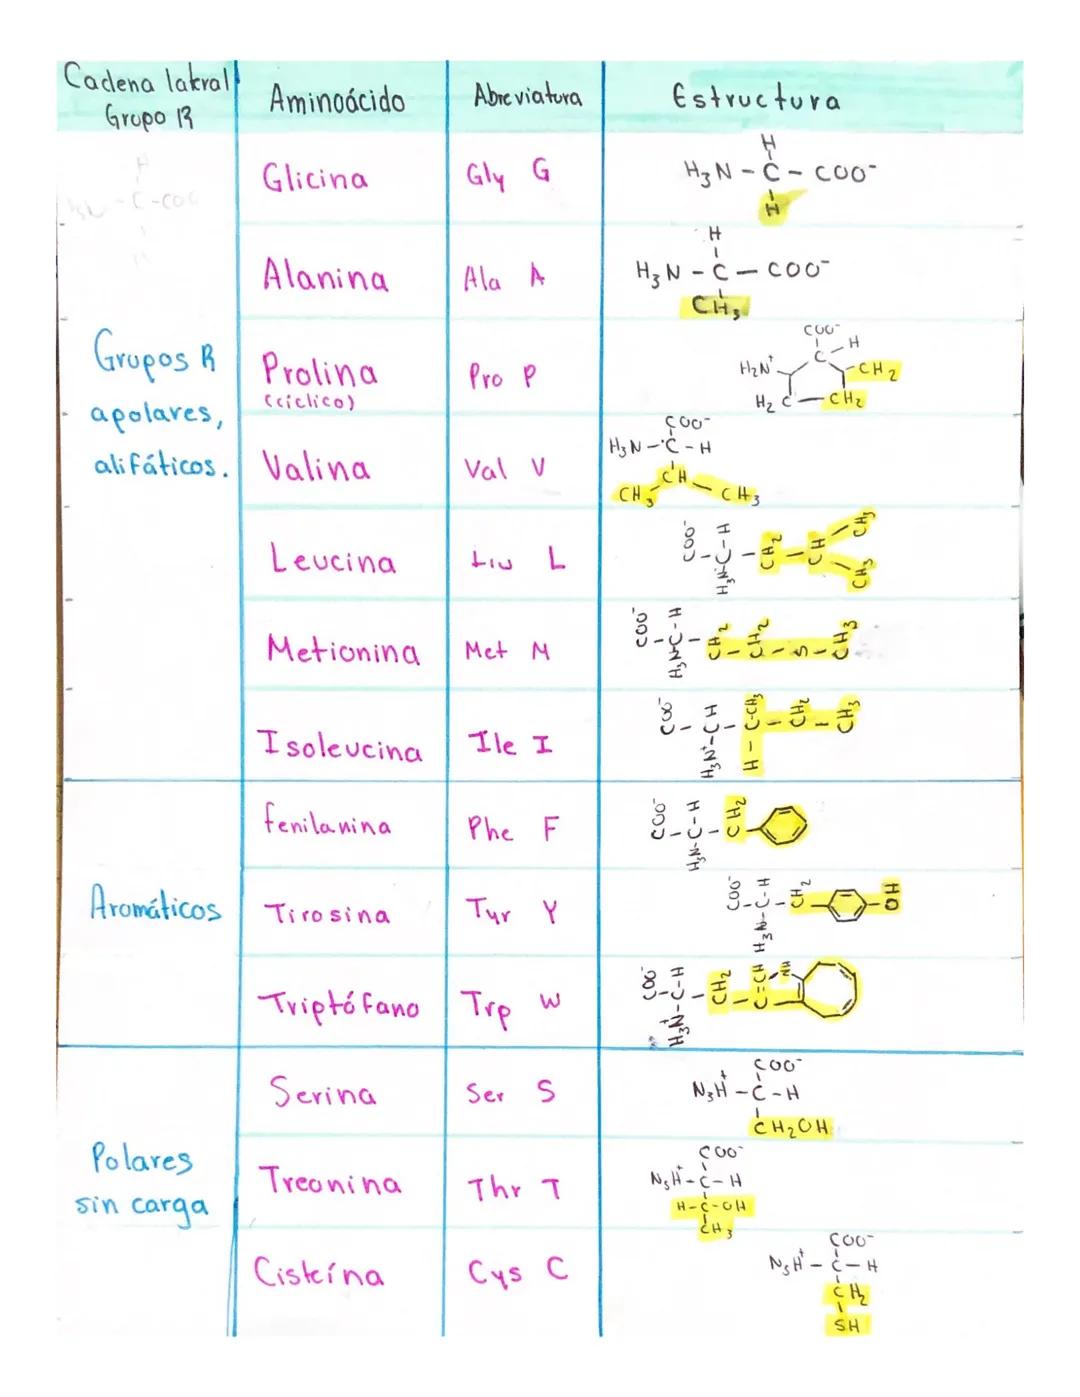 Cadena lateral
Grupo R
Aminoácido
Abreviatura
Estructura
Grupos R
apolares,
alifáticos.
Glicina
Gly G
H
H₃N - C - COO⁻
H
Alanina
Ala A
H
H₃N - C - COO⁻
CH₃
Prolina
(cíclico)
Pro P
COO⁻
C - H
H₂N⁺
CH₂
H₂C - CH₂
Valina
Val V
COO⁻
H₃N - C - H
CH
CH₃ CH₃
Leucina
Liu L
COO⁻
H₃N⁺-C-H
CH₂
CH
CH₃ CH₃
Metionina
Met M
COO⁻
H₃N-C-H
CH₂
CH₂
S
CH₃
Isoleucina
Ile I
COO⁻
H₃N⁺-CH
H - C-CH₃
CH₂
CH₃
Aromáticos
fenilanina
Phe F
COO⁻
H₃N-C-H
CH₂
Tirosina
Tyr Y
COO⁻
H₃N-C-H
CH₂
OH
Triptófano
Trp W
COO⁻
H₃N⁺-C-H
CH₂
C=CH
NH
Polares
sin carga
Serina
Ser S
COO⁻
N₃H⁺ - C - H
CH₂OH
Treonina
Thr T
COO⁻
N₃H⁺ - C - H
H-C-OH
CH₃
Cisteína
Cys C
COO⁻
N₃H⁺ - C - H
CH₂
SH